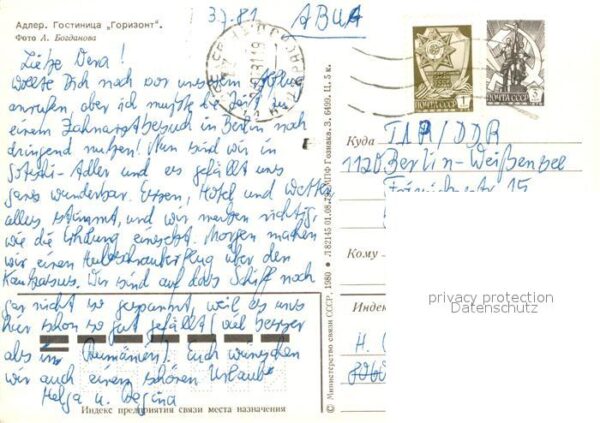 Адлер. Гостиница „Горизонт".
Фото А. Богданова
3.7.81
АВИА
Liebe Dena!
Wollte Dich noch vor unserem Abflug
anrufen, aber ich mußte die Zeit zu
einem Zahnarztbesuch in Berlin noch
dringend nutzen! Nun sind wir in
Sotschi-Adler und es gefällt uns
ganz wunderbar. Essen, Hotel und Wetter
alles stimmt, und wir merken richtig,
wie die Erholung einsetzt. Morgen machen
wir einen Hubschrauberflug über den
Kaukasus. Wir sind auf das Schiff noch
gar nicht so gespannt, weil es uns
hier schon so gut gefällt (viel besser
als in Rumänien). Euch wünschen
wir auch einen schönen Urlaub
Helga u. Regina
Индекс предприятия связи места назначения
© Министерство связи СССР, 1980 • Л 82145 01.08.79 МПФ Гознака. З. 6499. Ц. 5 к.
ПОЧТА СССР 1
ПОЧТА СССР 3
Куда ГДР/DDR
1120 Berlin-Weißensee
15
Кому
Индекс
H.
privacy protection
Datenschutz